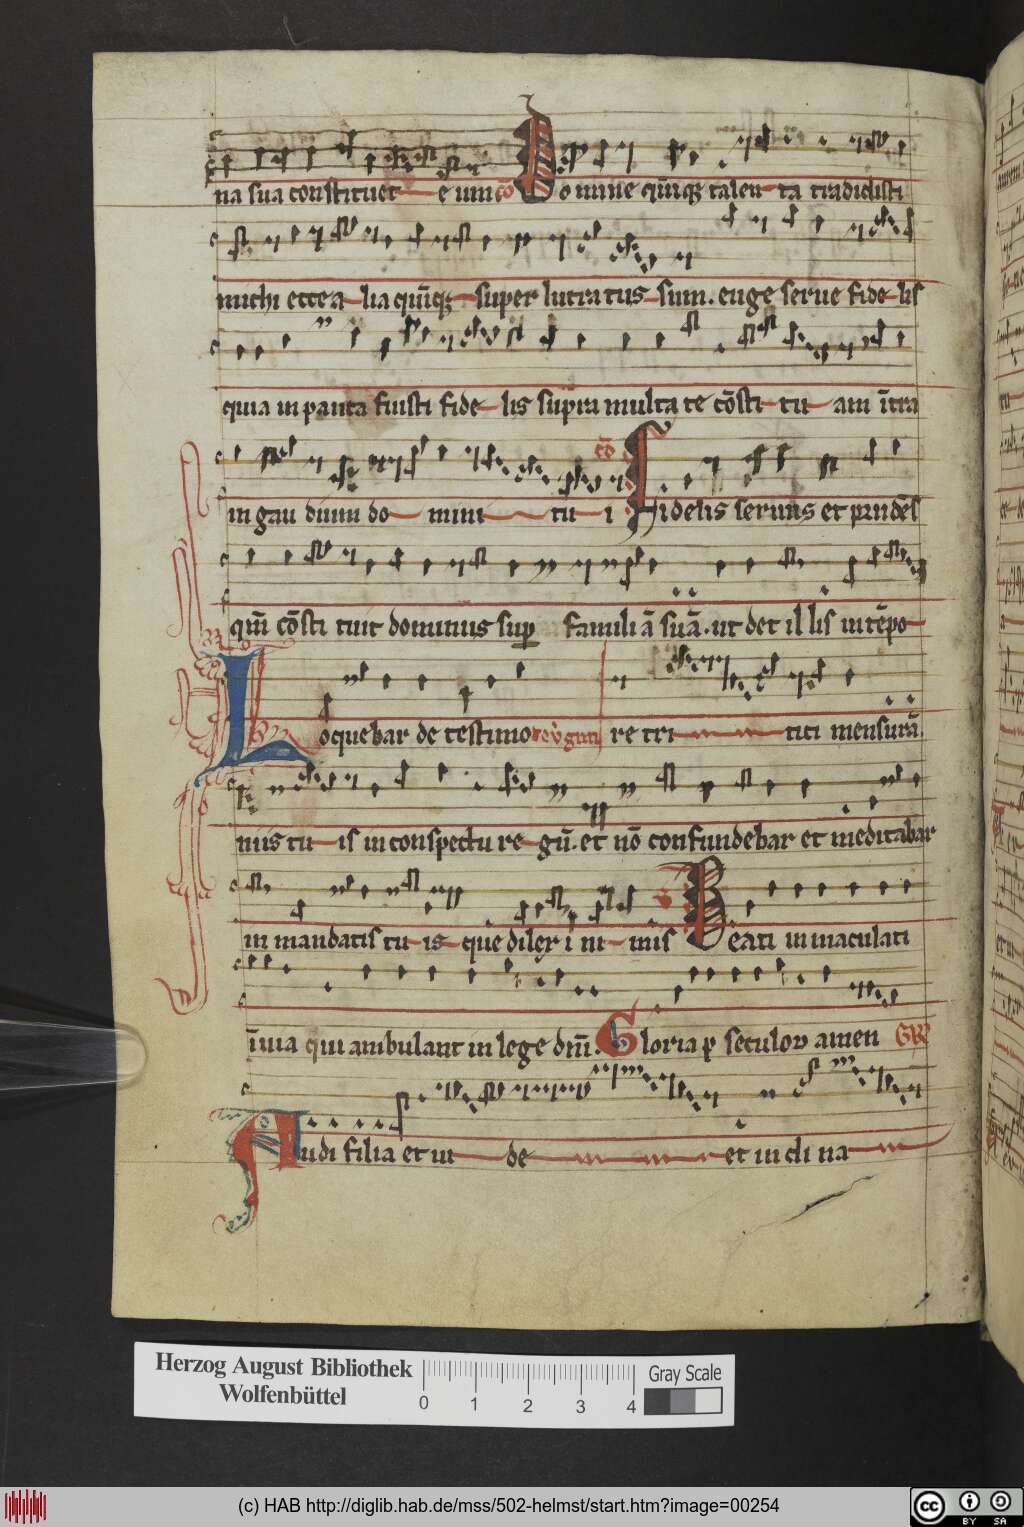 na sua constituet e um cō Domine quīqꝫ talenta tradidisti
michi ecce alia quīqꝫ super lucratus sum. euge serue fidelis
quia in pauca fuisti fidelis supra multa te cōstituam ītra
in gaudium domini tui cō Fidelis seruus et prudēs
quē cōstituit dominus suꝑ familiā suā. ut det illis in tēpo
Loquebar de testimo re tritici mensurā.
niis tuis in conspectu regū. et nō confundebar et meditabar
in mandatis tuis que dilexi nimis Beati inmaculati
ī uia qui ambulant in lege dn̄i. Gloria ꝑ seculoꝝ amen GR̄
Audi filia et uide et inclina
Herzog August Bibliothek
Wolfenbüttel
0 1 2 3 4
Gray Scale
(c) HAB http://diglib.hab.de/mss/502-helmst/start.htm?image=00254
cc BY SA